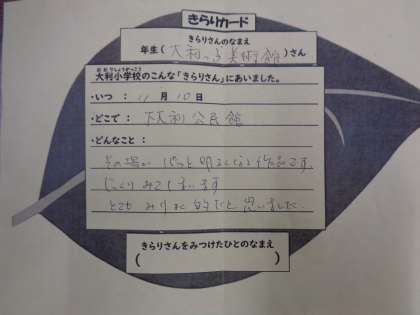 きらりカード
きらりさんのなまえ
年生(大利っ子美術館)さん
おおりしょうがっこう
大利小学校のこんな「きらりさん」にあいました。
・いつ : 11月10日
・どこで : 下大利公民館
・どんなこと :
その場が ぱっと明るくなる作品です。
じっくり みてしまいます
とても みりょく的だと思いました。
きらりさんをみつけたひとのなまえ
( )